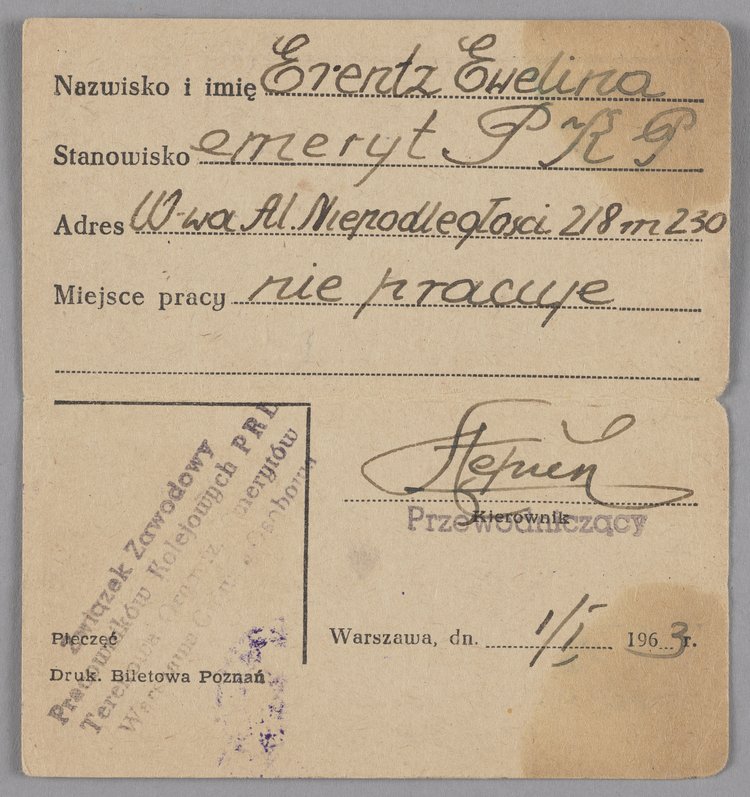 Nazwisko i imię Erentz Ewelina
Stanowisko emeryt PKP
Adres W-wa Al. Niepodległości 218 m 230
Miejsce pracy nie pracuje
Związek Zawodowy
Pracowników Kolejowych PRL
Emerytów
Warszawa
Stępień
Kierownik
Przewodniczący
Pieczęć
Warszawa, dn. 1/I 1963 r.
Druk. Biletowa Poznań